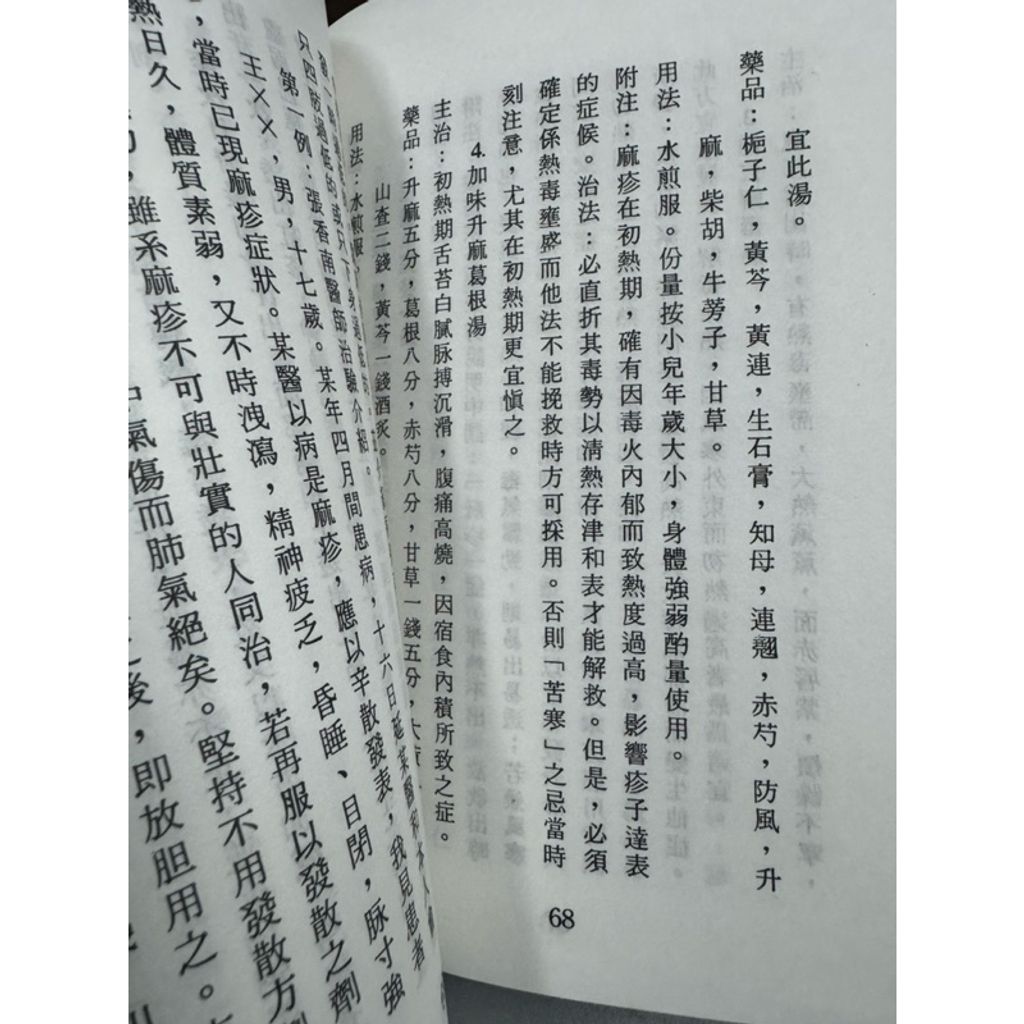 宜此湯。
藥品：梔子仁，黃芩，黃連，生石膏，知母，連翹，赤芍，防風，升
麻，柴胡，牛蒡子，甘草。
用法：水煎服。份量按小兒年歲大小，身體強弱酌量使用。
附注：麻疹在初熱期，確有因毒火內郁而致熱度過高，影響疹子達表
的症候。治法：必直折其毒勢以清熱存津和表才能解救。但是，必須
確定係熱毒壅盛而他法不能挽救時方可採用。否則「苦寒」之忌當時
刻注意，尤其在初熱期更宜愼之。
4. 加味升麻葛根湯
主治：初熱期舌苔白膩脉搏沉滑，腹痛高燒，因宿食內積所致之症。
藥品：升麻五分，葛根八分，赤芍八分，甘草一錢五分，大
山查二錢，黃芩一錢酒炙。
用法：水煎服
68
第一例：張香南醫師治驗介紹。
王××，男，十七歲。某年四月間患病，十六日延某醫
，當時已現麻疹症狀。某醫以病是麻疹，應以辛散發表，我見患者
熱日久，體質素弱，又不時洩瀉，精神疲乏，昏睡、目閉，脉寸強
雖系麻疹不可與壯實的人同治，若再服以發散之劑
氣傷而肺氣絕矣。堅持不用發散方
後，即放胆用之。